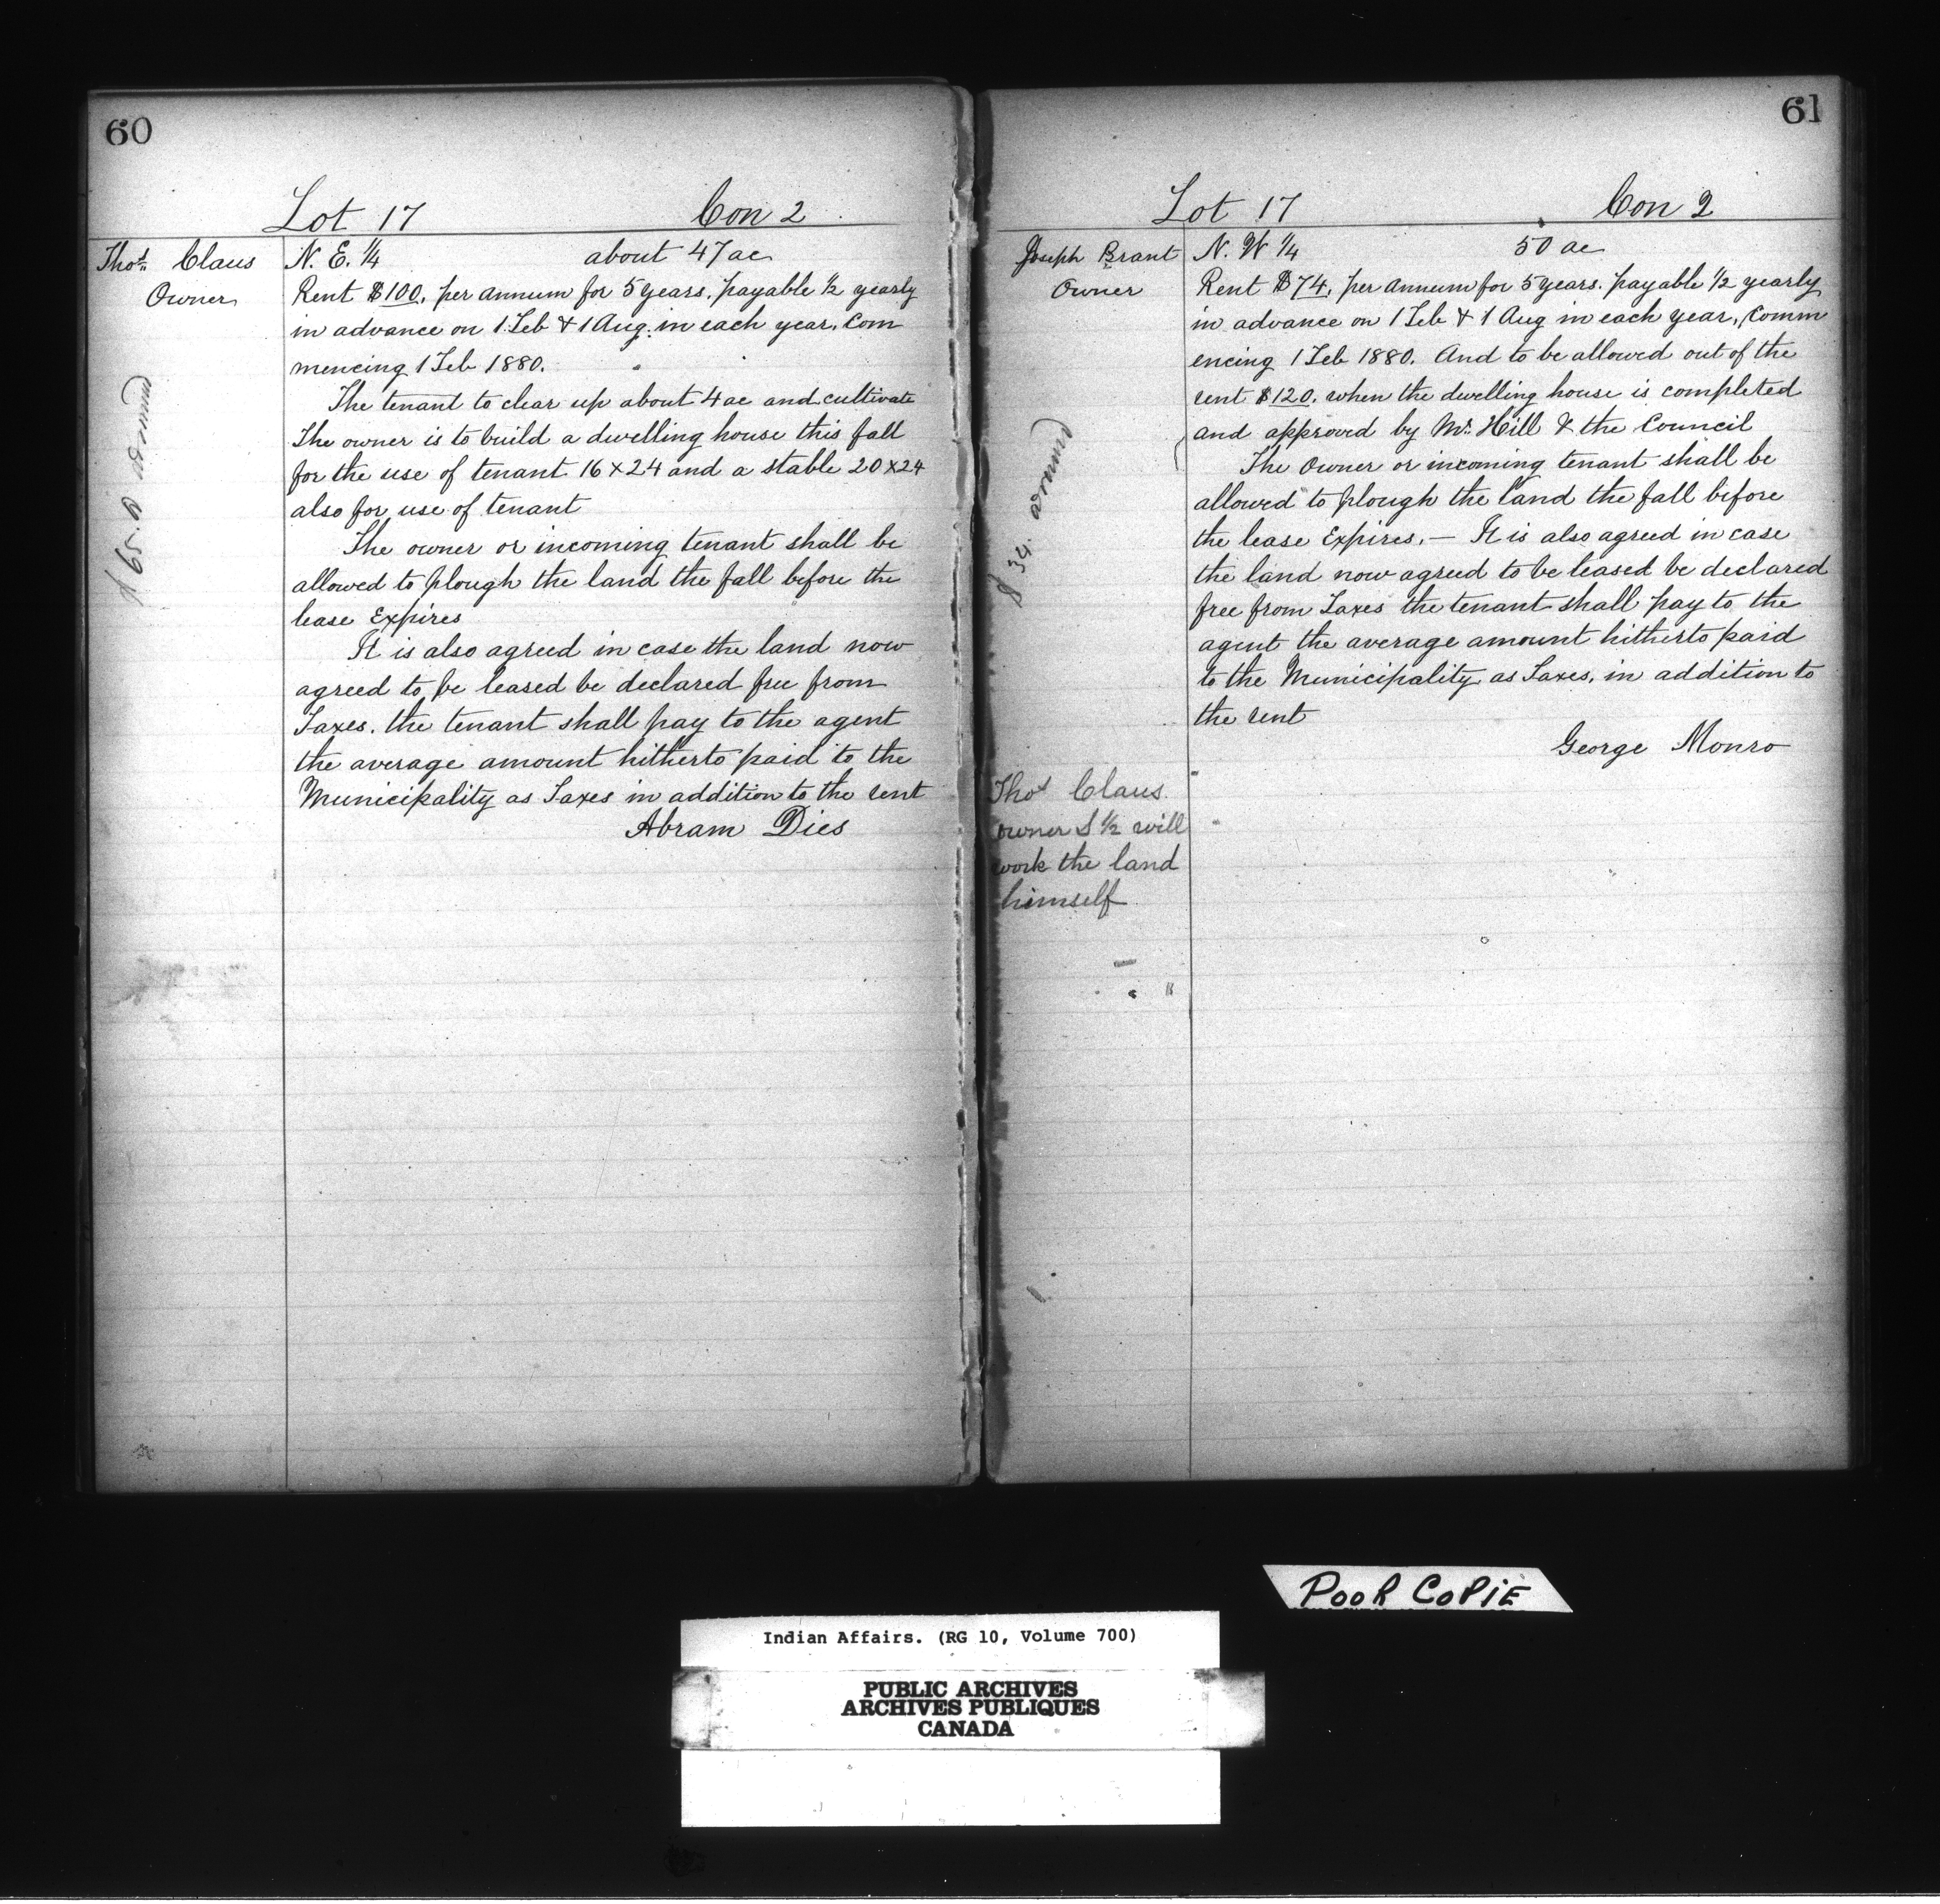 60
Lot 17 Con 2
Thos. Claus
Owner
N. E. 1/4 about 47 ac
Rent $100. per annum for 5 years. payable 1/2 yearly
in advance on 1 Feb & 1 Aug. in each year. Com
mencing 1 Feb 1880.
The tenant to clear up about 4 ac and cultivate
The owner is to build a dwelling house this fall
for the use of tenant 16 x 24 and a stable 20 x 24
also for use of tenant
The owner or incoming tenant shall be
allowed to plough the land the fall before the
lease Expires
It is also agreed in case the land now
agreed to be leased be declared free from
Taxes. the tenant shall pay to the agent
the average amount hitherto paid to the
Municipality as Taxes in addition to the rent
Abram Dies
61
Lot 17 Con 2
Joseph Brant
Owner
$ 34.
N. W 1/4 50 ac
Rent $74. per annum for 5 years. payable 1/2 yearly
in advance on 1 Feb & 1 Aug in each year, Comm
encing 1 Feb 1880. And to be allowed out of the
rent $120. when the dwelling house is completed
and approved by Mr. Hill & the Council
The Owner or incoming tenant shall be
allowed to plough the land the fall before
the lease Expires. — It is also agreed in case
the land now agreed to be leased be declared
free from Taxes the tenant shall pay to the
agent the average amount hitherto paid
to the Municipality as Taxes. in addition to
the rent
George Monro
Thos Claus
owner S 1/2 will
work the land
himself
POOR COPIE
Indian Affairs. (RG 10, Volume 700)
PUBLIC ARCHIVES
ARCHIVES PUBLIQUES
CANADA